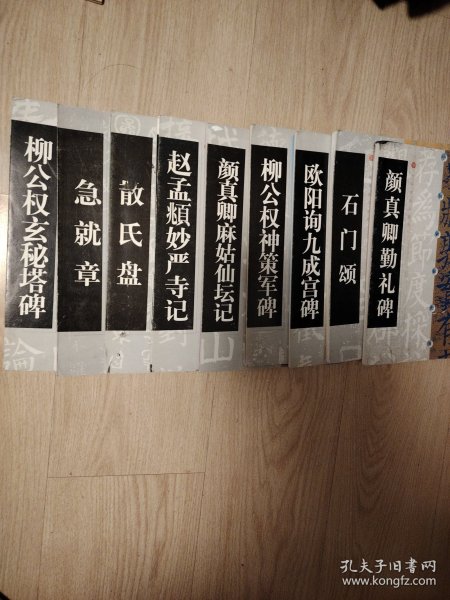 柳公权玄秘塔碑
急就章
散氏盘
赵孟頫妙严寺记
颜真卿麻姑仙坛记
柳公权神策军碑
欧阳询九成宫碑
石门颂
颜真卿勤礼碑
孔夫子旧书网
www.kongfz.com